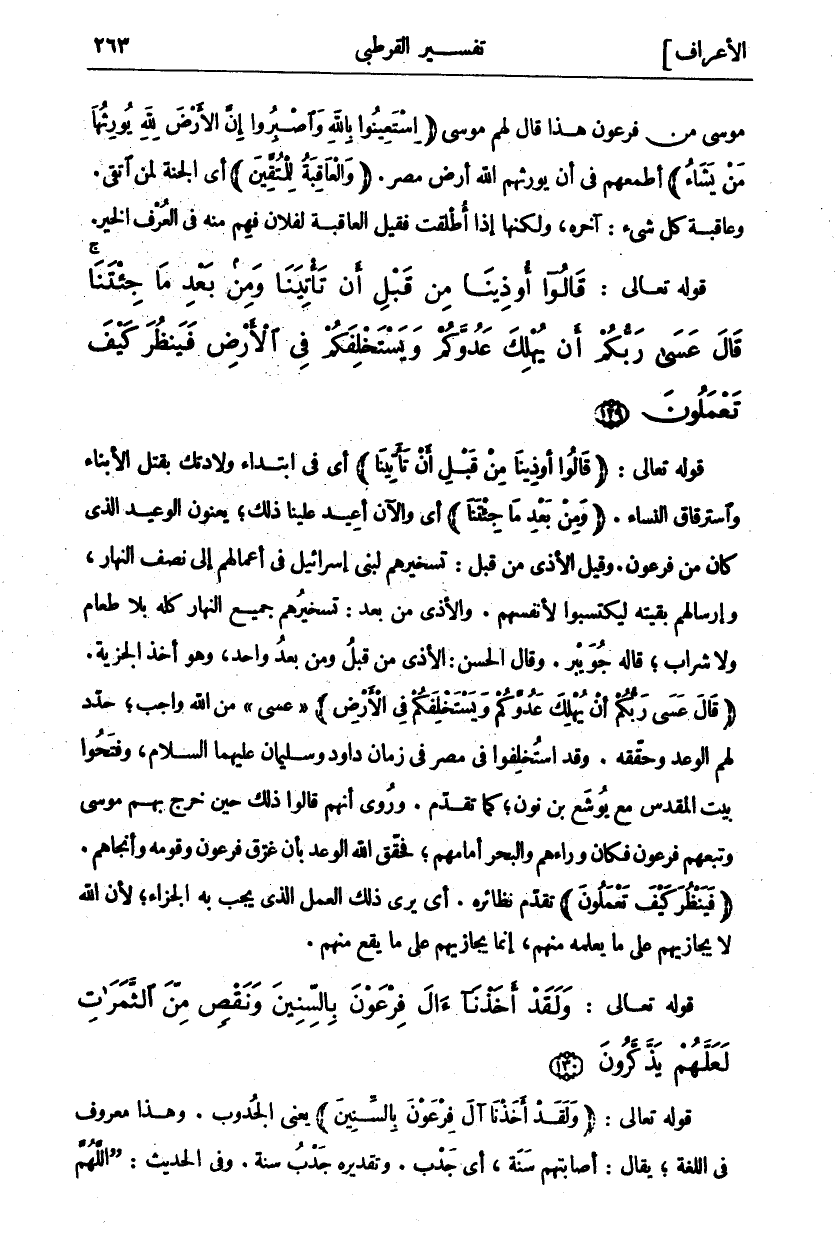 الأعراف] تفســـير القرطبى ٢٦٣
موسى من فرعون هـذا قال لهم موسى ﴿ اِسْتَعِينُوا بِاللهِ وَٱصْـبِرُوا إِنَّ الْأَرْضَ لِلهِ يُورِثُهَا
مَنْ يَشَاءُ ﴾ أطمعهم فى أن يورثهم الله أرض مصر . ﴿ وَالْعَاقِبَةُ لِلْمُتَّقِينَ ﴾ أى الجنة لمن اتقى .
وعاقبــة كل شىء : آخره، ولكنها إذا أُطلقت فقيل العاقبــة لفلان فهِم منه فى العُرْف الخير.
قوله تعــالى : قَالُوٓا۟ أُوذِينَــا مِن قَبْلِ أَن تَأْتِيَنَا وَمِنۢ بَعْدِ مَا جِئْتَنَا ۚ
قَالَ عَسَىٰ رَبُّكُمْ أَن يُهْلِكَ عَدُوَّكُمْ وَيَسْتَخْلِفَكُمْ فِى ٱلْأَرْضِ فَيَنظُرَ كَيْفَ
تَعْمَلُونَ ١٢٩
قوله تعالى : ﴿ قَالُوا أُوذِينَا مِنْ قَبْـلِ أَنْ تَأْتِيَنَا ﴾ أى فى ابتـداء ولادتك بقتل الأبناء
وٱسترقاق النساء . ﴿ وَمِنْ بَعْدِ مَا جِئْتَنَا ﴾ أى والآن أُعِيـد علينا ذلك؛ يعنون الوعيـد الذى
كان من فرعون. وقيل الأذى من قبل : تسخيرهم لبنى إسرائيل فى أعمالهم إلى نصف النهار ،
وإرسالهم بقيته ليكتسبوا لأنفسهم . والأذى من بعد : تسخيرُهم جميـع النهار كله بلا طعام
ولا شراب ؛ قاله جُوَيْبر . وقال الحسن : الأذى من قبلُ ومن بعدُ واحد، وهو أخذ الجزية.
﴿ قَالَ عَسَى رَبُّكُمْ أَنْ يُهْلِكَ عَدُوَّكُمْ وَيَسْتَخْلِفَكُمْ فِى الْأَرْضِ ﴾ « عسى » من الله واجب ؛ جدّد
لهم الوعد وحقّقه . وقد استُخلِفوا فى مصر فى زمان داود وسليمان عليهما السـلام، وفتَحُوا
بيت المقدس مع يُوشَع بن نون؛ كما تقـدّم . ورُوى أنهم قالوا ذلك حين خرج بهـم موسى
وتبعهم فرعون فكان وراءهم والبحر أمامهم ؛ فحقّق الله الوعد بأن غرّق فرعون وقومه وأنجاهم .
﴿ فَيَنْظُرَ كَيْفَ تَعْمَلُونَ ﴾ تقدّم نظائره . أى يرى ذلك العمل الذى يجب به الجزاء؛ لأن الله
لا يجازيهم على ما يعلمه منهم، إنما يجازيهم على ما يقع منهم .
قوله تعـالى : وَلَقَدْ أَخَذْنَـآ ءَالَ فِرْعَوْنَ بِالسِّنِينَ وَنَقْصٍ مِّنَ ٱلثَّمَرَٰتِ
لَعَلَّهُمْ يَذَّكَّرُونَ ١٣٠
قوله تعالى : ﴿ وَلَقَــدْ أَخَذْنَا آلَ فِرْعَوْنَ بِالسِّنِينَ ﴾ يعنى الجُدوب . وهـذا معروف
فى اللغة ؛ يقال : أصابتهم سَنَة ، أى جَدْب . وتقديره جَدْبُ سنة . وفى الحديث : ”اللَّهُمَّ